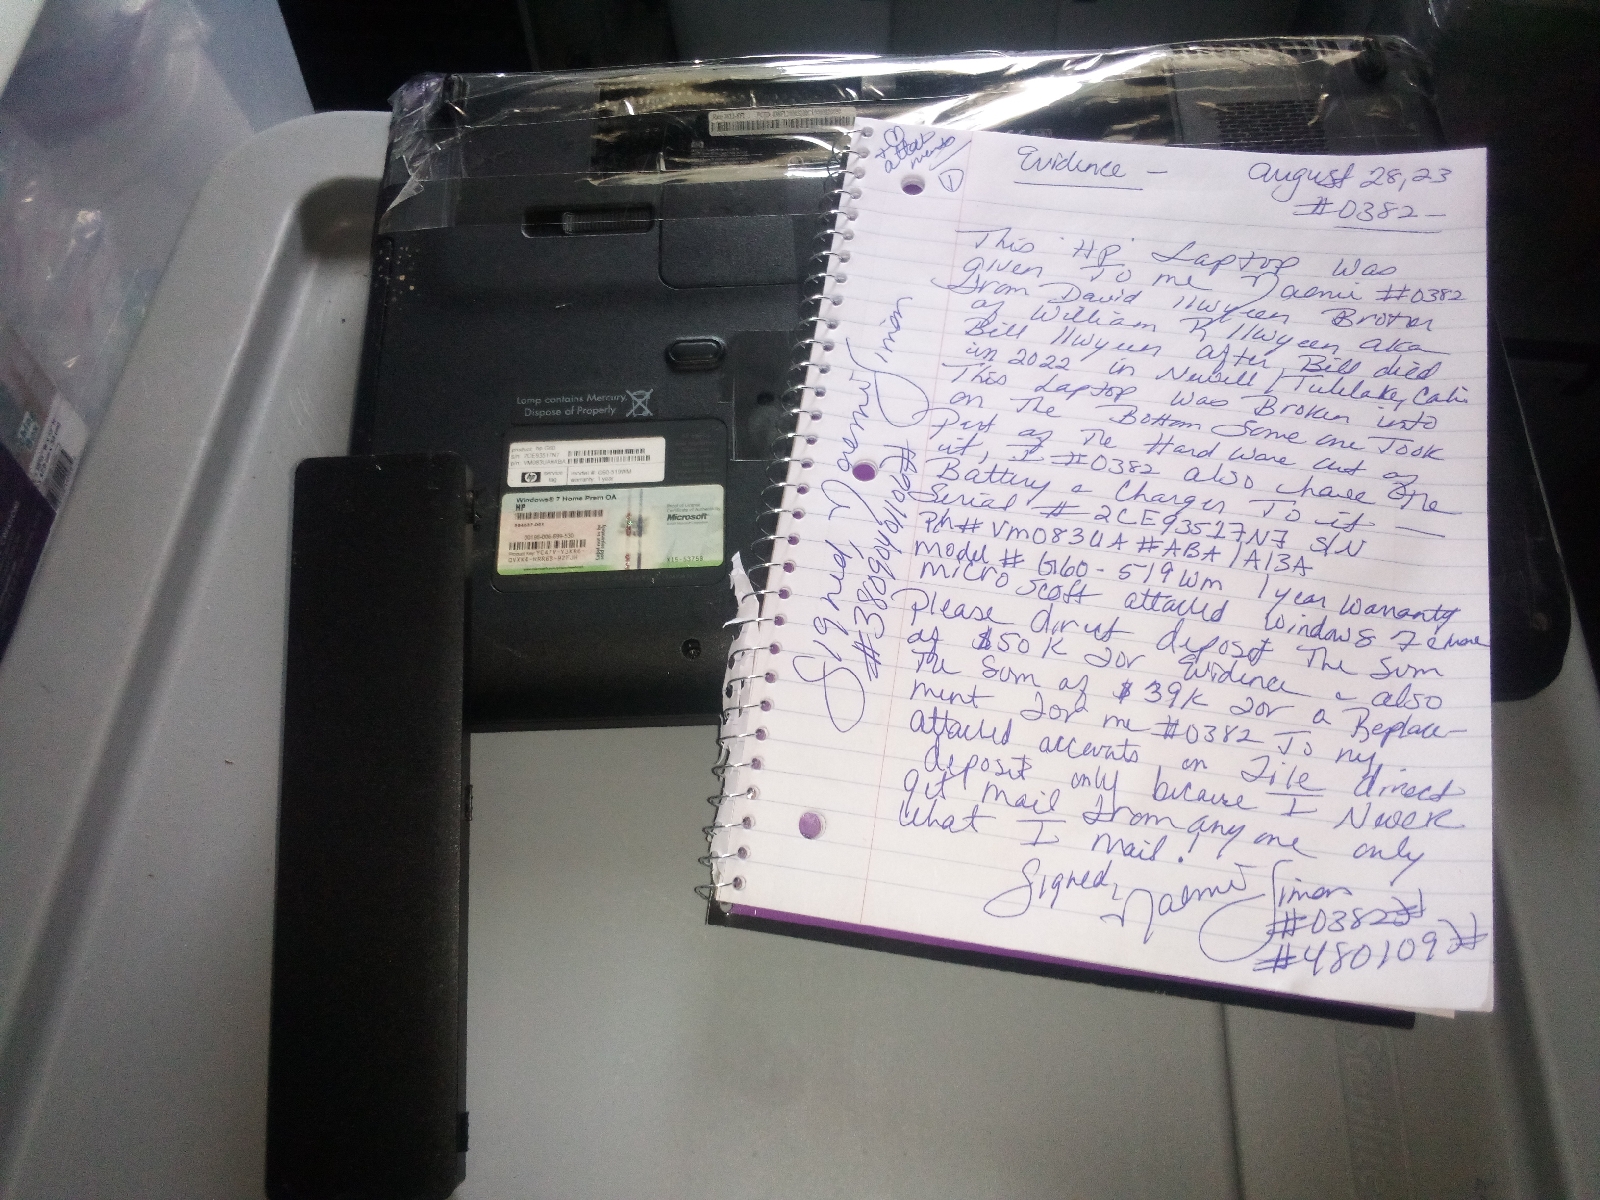 Lamp contains Mercury,
Dispose of Properly
hp
service
tag
model#: G60-519WM
warranty: 1 year
Windows® 7 Home Prem OA
HP
Microsoft
X15-53758
attach
ments
1
Evidence - August 28, 23
#0382 -
This "HP" Laptop was
given To me Naemi #0382
from David Ilwyeen Brother
of William R Ilwyeen aka
Bill Ilwyeen after Bill died
in 2022 in Newell / Tulelake, Cali
This Laptop was Broken into
on The Bottom Some one Took
Part of The Hard Ware out of
it, I #0382 also have The
Battery & Charger To it
Serial # 2CE93517N7 S/N
Ph# VM083UA #ABA /A13A
model # G60-519wm 1 year warranty
micro Scoft attached windows 7 Home
Please direct deposit The Sum
of $50K for Evidence & also
The Sum of $39K for a Replace-
ment for me #0382 To my
attached accounts on File direct
deposit only because I Never
get mail from any one only
What I mail!
Signed, Naemi Simon
#0382#
#480109#
Signed, Naemi Simon